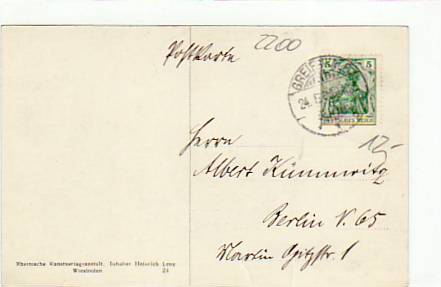 Postkarte
2200
5
24.
12-
Herrn
Albert Kümmritz
Berlin N. 65
Martin Opitzstr. 1
Rheinische Kunstverlagsanstalt, Inhaber Heinrich Leue
Wiesbaden
24